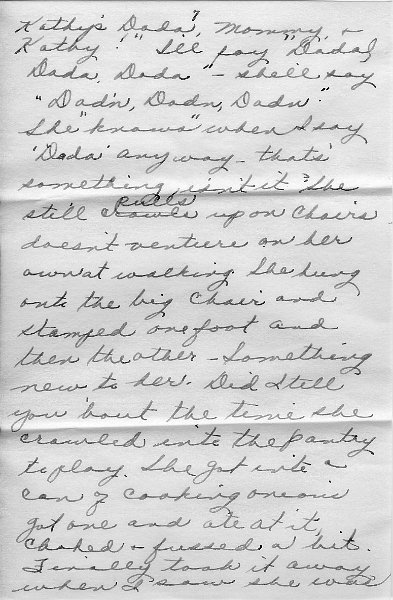 7
Kathy's Dada, Mommy, &
Kathy!" I'll say "Dada,
Dada, Dada" - she'll say
"Dad'n, Dadn, Dadn."
She "knows" when I say
'Dada' anyway - that's
something, isn't it? She
still pulls up on chairs
doesn't venture on her
own at walking. She hung
onto the big chair and
stamped one foot and
then the other - something
new to her. Did I tell
you 'bout the time she
crawled into the pantry
to play. She got into a
can of cooking onions
got one and ate at it,
choked & fussed a bit.
Finally took it away
when I saw she was